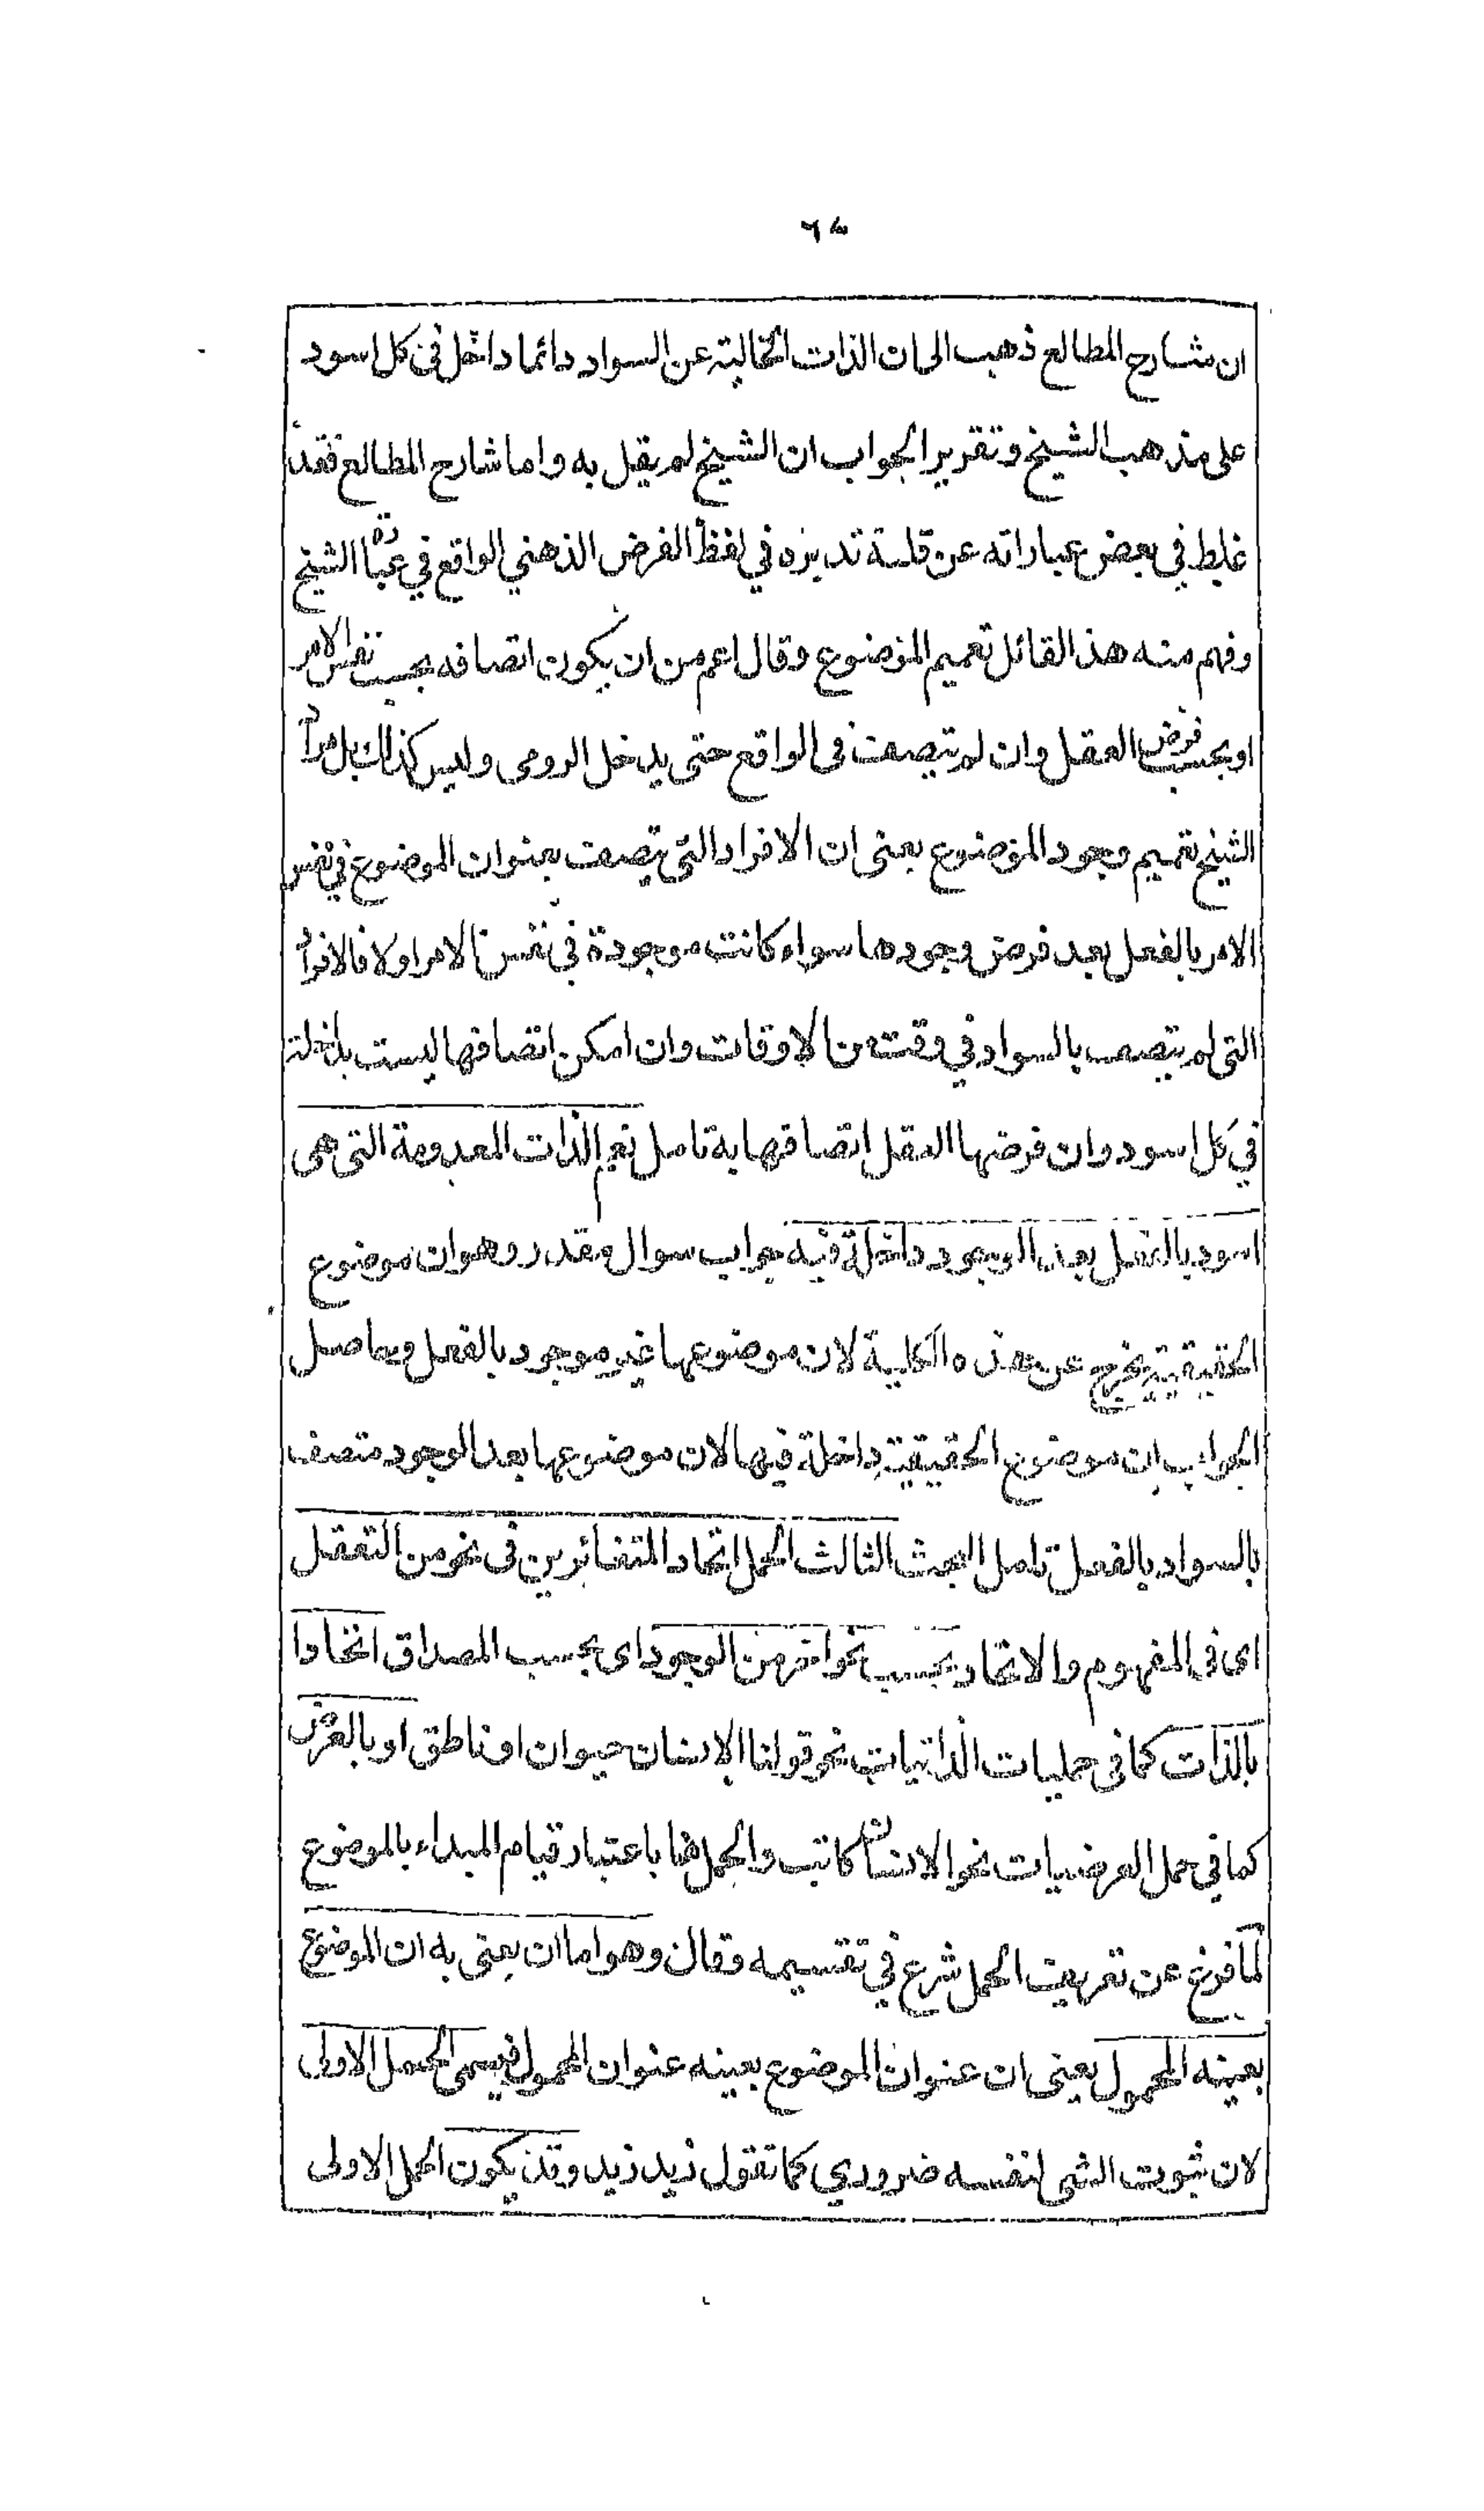 ٦٤
ان شارح المطالع ذهب الى ان الذات الخالية عن السواد دائما داخل في كل اسود
على مذهب الشيخ وتقرير الجواب ان الشيخ لم يقل به واما شارح المطالع فقد
غلط في بعض عباراته عن قلة تدبره في لفظ الفرض الذهني الواقع في عبارة الشيخ
وفهم منه هذا القائل تعميم الموضوع وقال اعم من ان يكون اتصافه بحسب نفس الامر
او بحسب فرض العقل وان لم يتصف في الواقع حتى يدخل الرومى وليس كذالك بل مراد
الشيخ تعميم وجود الموضوع بمعنى ان الافراد التي يتصف بعنوان الموضوع في نفس
الامر بالفعل بعد فرض وجودها سواء كانت موجودة في نفس الامر اولا فالافراد
التى لم يتصف بالسواد في وقت من الاوقات وان امكن اتصافها ليست بداخلة
في كل اسود وان فرضها العقل اتصافها به تامل نعم الذات المعدومة التى هى
اسود بالفعل بعد الوجود داخلة فيه جواب سوال مقدر وهو ان موضوع
الحقيقية يخرج عن هذه الكلية لان موضوعها غير موجود بالفعل وحاصل
الجواب ان موضوع الحقيقية داخلة فيها لان موضوعها بعد الوجود متصف
بالسواد بالفعل تامل البحث الثالث الحمل اتحاد المتغائرين في نحو من التعقل
اى في المفهوم والاتحاد بحسب نحو اخر من الوجود اى بحسب المصداق اتحادا
بالذات كما في حمليات الذاتيات نحو قولنا الانسان حيوان او ناطق او بالعرض
كما في حمل العرضيات نحو الانسان كاتب والحمل هنا باعتبار قيام المبداء بالموضوع
لما فرغ عن تعريف الحمل شرع في تقسيمه وقال وهو اما ان يعنى به ان الموضوع
بعينه المحمول يعنى ان عنوان الموضوع بعينه عنوان المحمول فيسمى الحمل الاولى
لان ثبوت الشى لنفسه ضروري كما تقول زيد زيد وقد يكون الحمل الاولى